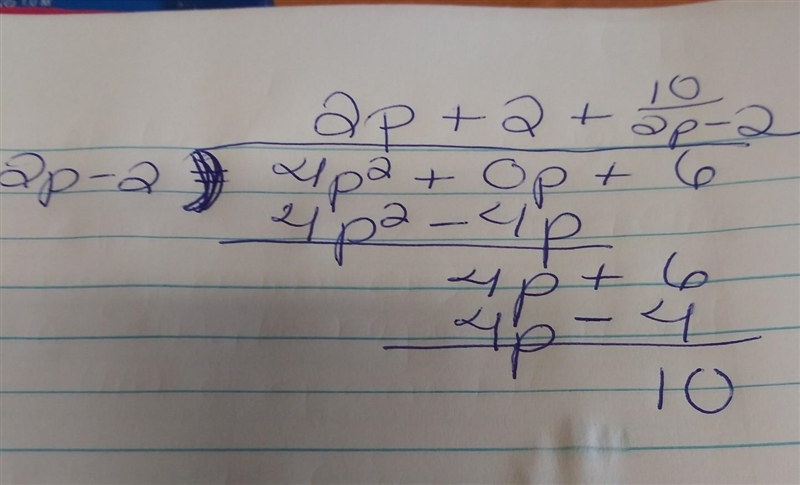 2p + 2 + 10/2p-2
2p-2 ) 4p² + 0p + 6
4p² - 4p
4p + 6
4p - 4
10